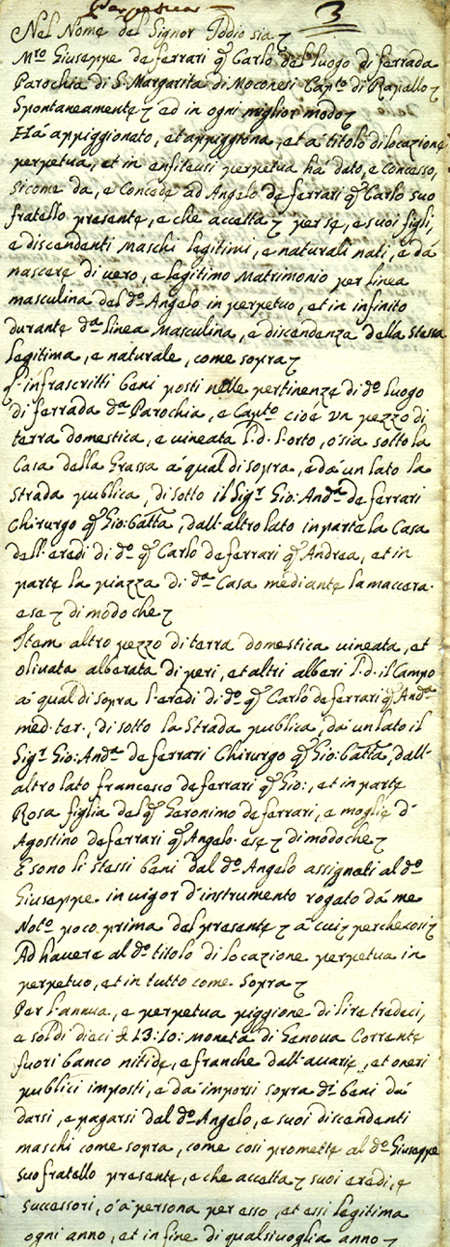 Perpetua
3
Nel Nome del Signor Iddio sia ɀ
Mro Giuseppe de ferrari q. Carlo del luogo di ferrada
Parochia di S. Margarita di Moconesi Capto di Rapallo ɀ
Spontaneamente ɀ ed in ogni miglior modo ɀ
Hà appiggionato, et appiggiona, et à titolo di locazione
perpetua, et in enfiteusi perpetua hà dato, e concesso,
sicome da, e concede ad Angelo de ferrari q. Carlo suo
fratello presente, e che accetta ɀ per se, e suoi figli,
e discendenti maschi legitimi, e naturali nati, e da
nascere di vero, e legitimo Matrimonio per linea
masculina del do Angelo in perpetuo, et in infinito
durante da linea Masculina, e discendenza della stessa
legitima, e naturale, come sopra ɀ
l'infrascritti beni posti nelle pertinenze di do luogo
di ferrada da Parochia, e Capto cioè un pezzo di
terra domestica, e vineata l. d. l'orto, o sia sotto la
Casa della Grassa à qual di sopra, e da un lato la
strada publica, di sotto il Sigr Gio: Anda de ferrari
Chirurgo q. Gio: Batta, dall'altro lato in parte la Casa
dell'eredi di do q. Carlo de ferrari q. Andrea, et in
parte la piazza di da Casa mediante la maccera.
e se ɀ di modo che ɀ
Item altro pezzo di terra domestica vineata, et
olivata alberata di peri, et altri alberi l. d. il Campo
à qual di sopra l'eredi di do q. Carlo de ferrari q. Anda
med. ter., di sotto la Strada publica, da un lato il
Sigr Gio: Anda de ferrari Chirurgo q. Gio: Batta, dall'
altro lato francesco de ferrari q. Gio:, et in parte
Rosa figlia del q. Geronimo de ferrari, e moglie d'
Agostino de ferrari q. Angelo. e se ɀ di modo che ɀ
E sono li stessi beni dal do Angelo assignati al do
Giuseppe in vigor d'instrumento rogato da me
Noto poco prima del presente ɀ à cui ɀ perche così ɀ
Ad havere al do titolo di locazione perpetua in
perpetuo, et in tutto come sopra ɀ
Per l'annua, e perpetua piggione di lire tredeci,
e soldi dieci £ 13:10: moneta di Genova Corrente
fuori banco nitide, e franche dall'avarie, et oneri
publici imposti, e da imporsi sopra di beni da
darsi, e pagarsi dal do Angelo, e suoi discendenti
maschi come sopra, come così promette al do Giuseppe
suo fratello presente, e che accetta ɀ suoi eredi, e
successori, o à persona per esso, et essi legitima
ogni anno, et in fine di qualsivoglia anno ɀ